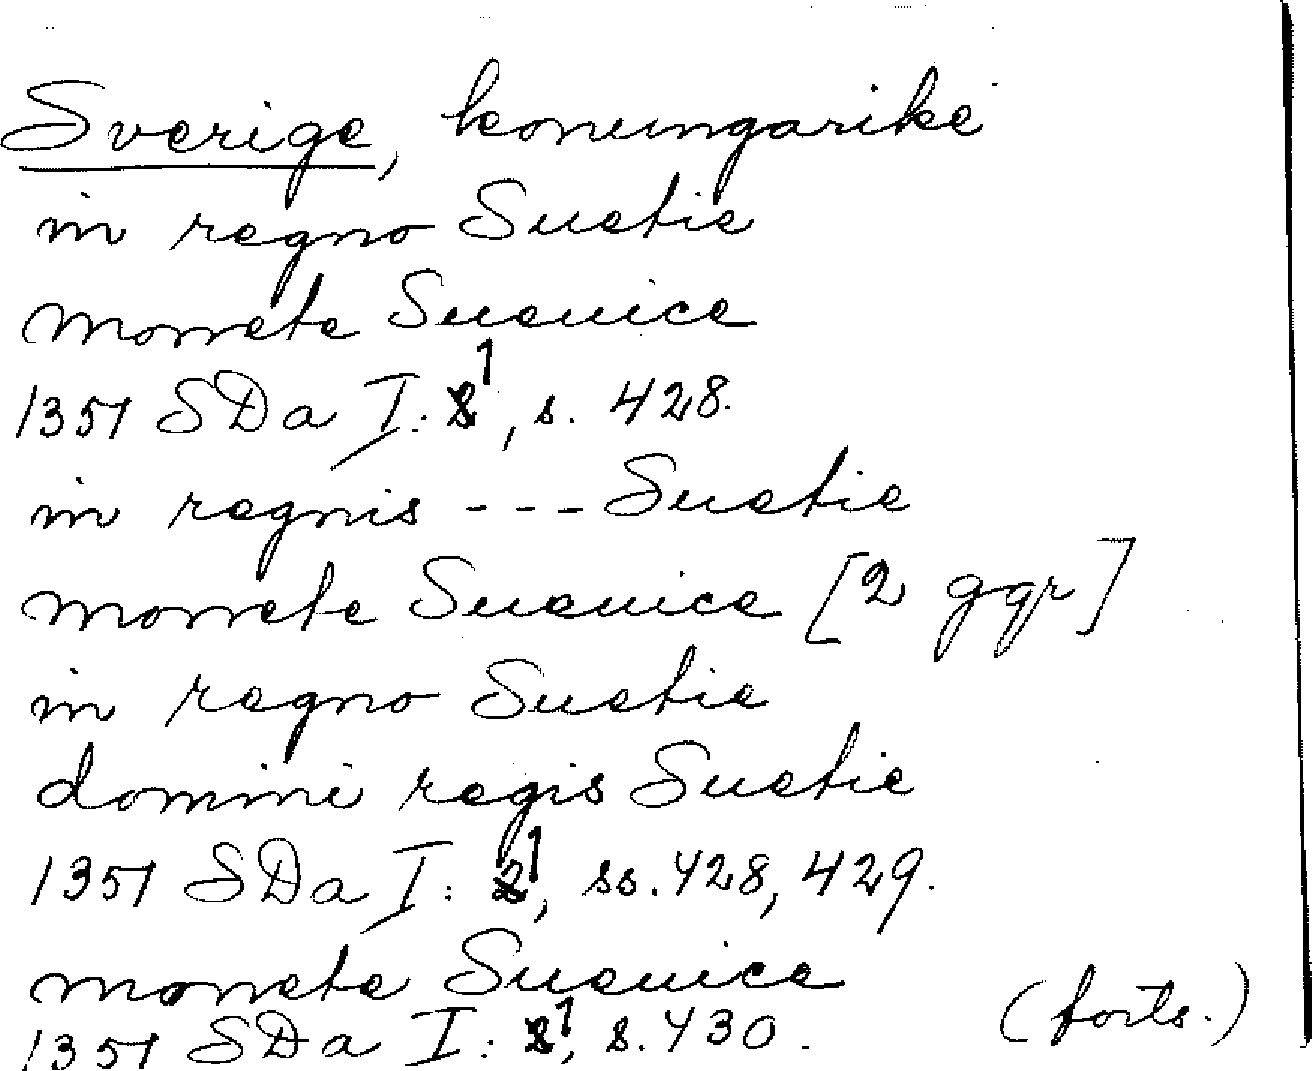 Sverige, konungarike
in regno Suetie
monete Sueuice
1351 SDa I: 1, s. 428.
in regnis --- Suetie
monete Sueuice [2 ggr]
in regno Suetie
domini regis Suetie
1351 SDa I: 1, ss. 428, 429.
monete Sueuice
1351 SDa I: 1, s. 430.
(forts.)